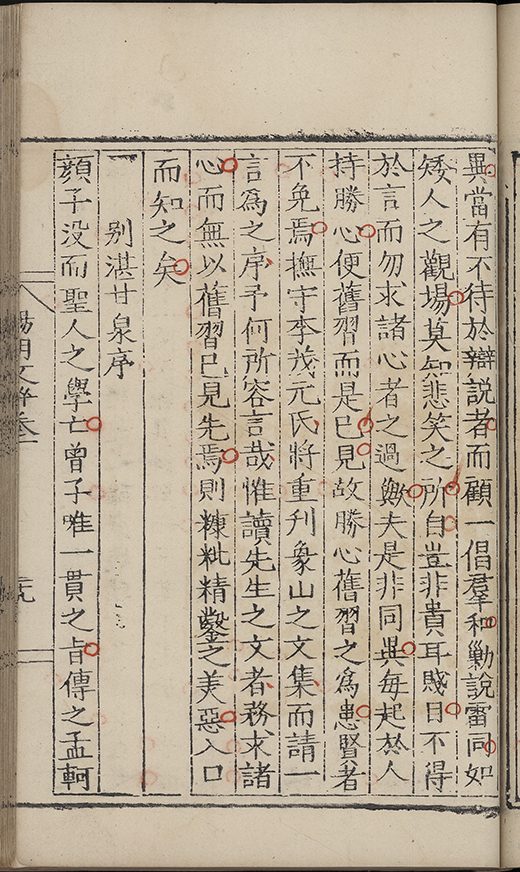 異當有不待於辯說者而顧一倡羣和勦說雷同如
矮人之觀場莫知悲笑之所自豈非貴耳賤目不得
於言而勿求諸心者之過歟夫是非同異每起於人
持勝心便舊習而是已見故勝心舊習之為患賢者
不免焉撫守李茂元氏將重刊象山之文集而請一
言爲之序予何所容言哉惟讀先生之文者務求諸
心而無以舊習已見先焉則糠粃精鑿之美惡入口
而知之矣
別湛甘泉序
顔子没而聖人之學亡曾子唯一貫之㫖傳之孟軻
陽明文